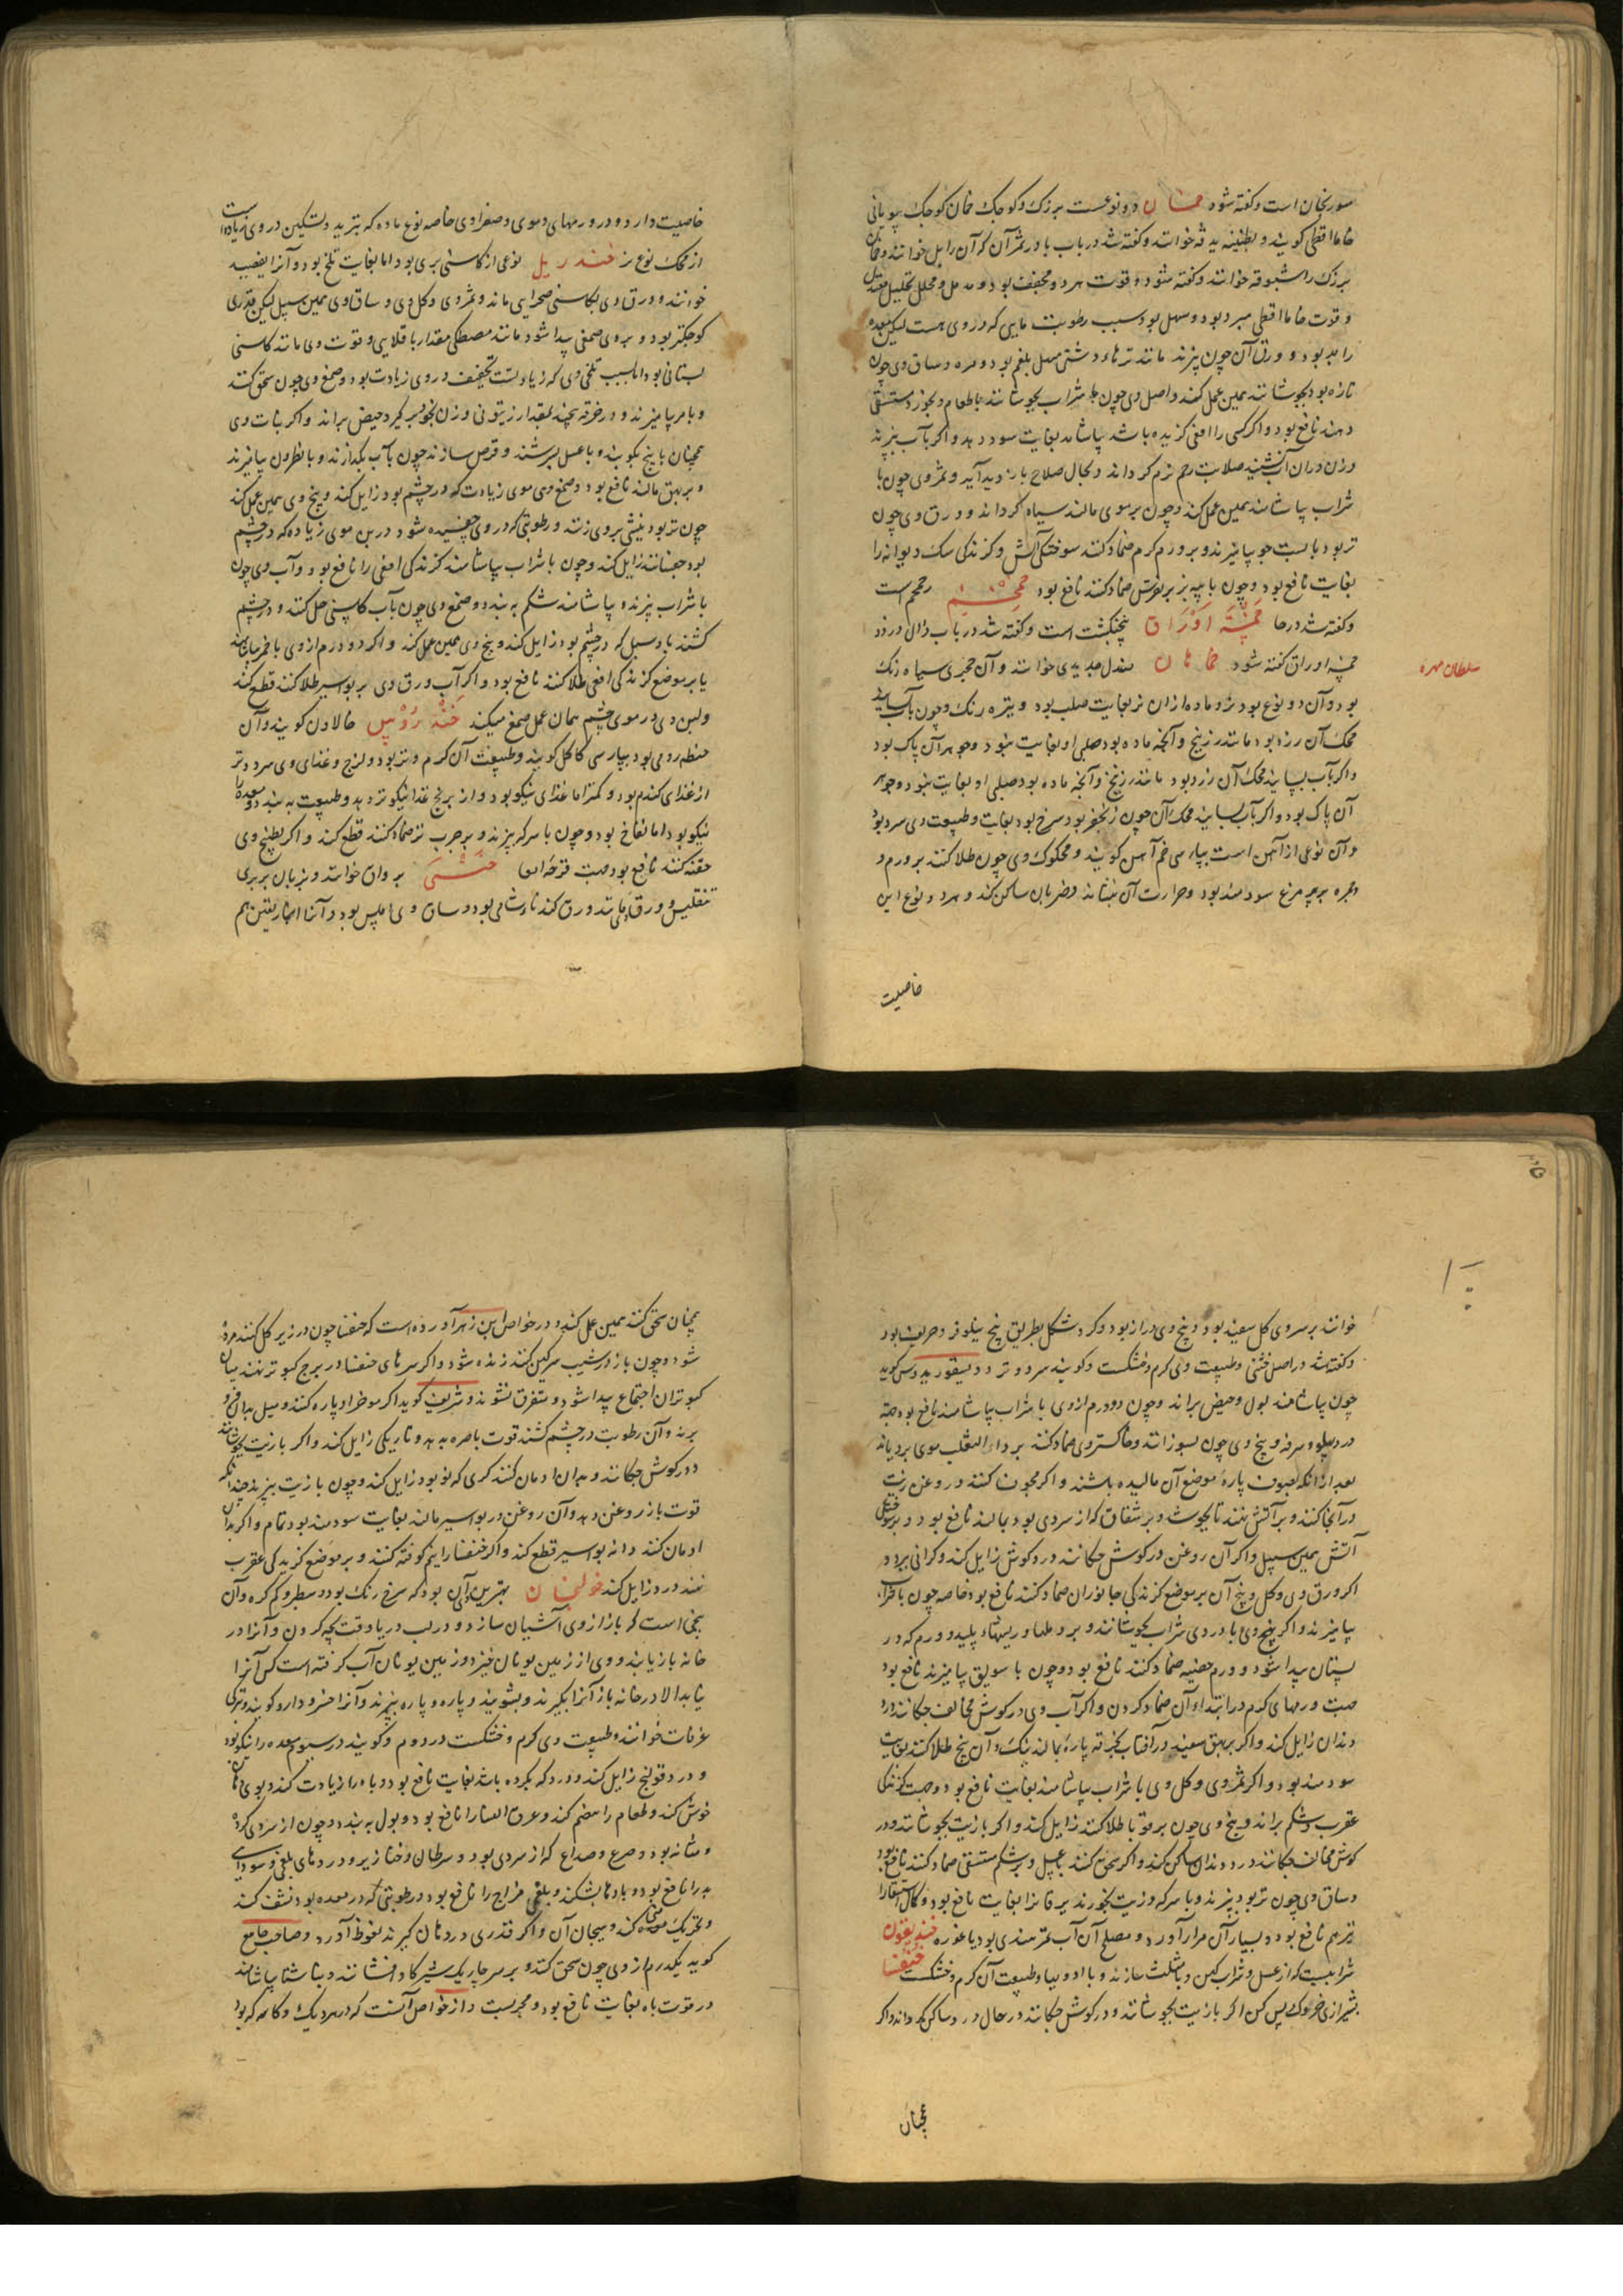 سورنجان است و گفته شود خمان دو نوعست بزرک و کوچک خمان کوچک بیونانی
خاما اقطی کویند و بطینیه یدقه خوانند و گفته شد در باب با و ثمر آن که آن را بل خوانند و خمان
بزرک را شبوقه خوانند و گفته شود و قوت هر دو مجفف بود و مدمل و محلل تحلیل معتدل
و قوت خاما اقطی مبرد بود و مسهل بود و سبب رطوبت مایی که در وی هست لیکن معده
را بد بود و ورق آن چون بپزند مانند ترهاء دشتی مسهل بلغم بود و مره و ساق وی چون
تازه بود بجوشانند همین عمل کند و اصل وی چون با شراب بجوشانند با طعام و بخورد مستسقی
دهند نافع بود و اگر کسی را افعی کزیده باشد بیاشامد بغایت سود دهد و اگر بآب بپزند
و زن در آن آب نشیند صلابت رحم نرم کرداند و بحال صلاح باز آید و ثمر وی چون با
شراب بیاشامند همین عمل کند و چون بر موی مالند سیاه کرداند و ورق وی چون
تر بود با پست جو بیامیزند و بر ورم کرم ضماد کنند سوختکی آتش و کزندکی سک دیوانه را
بغایت نافع بود و چون با پیه بز بر نقرس ضماد کنند نافع بود خمخم رحمحم است
و گفته شد در حا خمسة اوراق پنجنکشت است و گفته شد در باب ذال در ذو
خمسه اوراق گفته شود خماهان صندل حدیدی خوانند و آن حجری سیاه رنک
سلطان مهره
بود و آن دو نوع بود نر و ماده از آن نر بغایت صلب بود و تیره رنک و چون بآب بسایند
محک آن زرد بود مانند زرنیخ و آنچه ماده بود صلبی او بغایت نبود و جوهر آن پاک بود
و اگر بآب بسایند محک آن زرد بود مانند زرنیخ و آنچه ماده بود صلبی او بغایت نبود و جوهر
آن پاک بود و اگر بآب بسایند محک آن چون زنجفر بود سرخ بود بغایت و طبیعت وی سرد بود
و آن نوعی از آهن است بپارسی خم آهن کویند و محکوک وی چون طلا کنند بر ورم و
حمره بپر مرغ سودمند بود و حرارت آن بنشاند و ضربان ساکن کند و هر دو نوع این
خاصیت
خاصیت دارد و در ورمهای دموی و صفراوی خاصه نوع ماده که تبرید و تسکین در وی زیادت است
از محک نوع نر خندریل نوعی از کاسنی بری بود اما بغایت تلخ بود و آنرا یعضید
خوانند و ورق وی بکاسنی صحرایی ماند و ثمر وی و کل وی و ساق وی همین سبیل لیکن قدری
کوچکتر بود و بر وی صمغی پیدا شود مانند مصطکی مقدار باقلایی و قوت وی مانند کاسنی
بستانی بود اما بسبب تلخی وی که زیادتست تجفیف در وی زیادت بود و صمغ وی چون سحق کنند
و با مر بیامیزند و در خرقه بچند بمقدار زیتونی و زن بخود بر کیرد حیض براند و اگر نبات وی
همچنان با بیخ بکوبند و با عسل بسرشند و قرص سازند چون بآب بکدازند و با نطرون بیامیزند
و بر بهق مالند نافع بود و صمغ وی موی زیادت که در چشم بود زایل کند و بیخ وی همین عمل کند
چون تر بود نیشی بر وی زنند و رطوبتی که در وی چفسیده شود در بن موی زیاده که در چشم
بود چفسانند زایل کند و چون با شراب بیاشامند کزندکی افعی را نافع بود و آب وی چون
با شراب بپزند و بیاشامند شکم ببندد و صمغ وی چون بآب کاسنی حل کنند و در چشم
کشند باد سبل که در چشم بود زایل کند و بیخ وی همین عمل کند و اگر دو درم از وی با خمر بیاشامند
یا بر موضع کزندکی افعی طلا کنند نافع بود و اگر آب ورق وی بر بواسیر طلا کنند قطع کند
و لبن وی در موی چشم همان عمل صمغ میکند خندروس خالاون کویند و آن
حنطه رومی بود بپارسی کاکل کویند و طبیعت آن کرم و تر بود و لزج و غذای وی سرد و تر
از غذای کندم بود و کمتر اما غذای نیکو بود و از برنج غذا نیکوتر دهد و طبیعت ببندد و معده را
نیکو بود اما نفاخ بود و چون با سرکه بپزند و بر جرب تر ضماد کنند قطع کند و اگر بطبیخ وی
حقنه کنند نافع بود جهت قرحه امعا خنثی برواق خوانند و بزبان بربری
تنقلیس و ورق وی مانند ورق کندنا شامی بود و ساق وی املس بود و آنرا انجاریقن هم
خوانند بر سر وی کل سفید بود و بیخ وی دراز بود و کرد شکل بطریق بیخ نیلوفر و حریف بود
و گفته شد در اصل خنثی و طبیعت وی کرم و خشکست و کویند سرد و تر و دیسقوریدوس کوید
چون بیاشامند بول و حیض براند و چون دو درم از وی با شراب بیاشامند نافع بود جهة
درد پهلو و سرفه و بیخ وی چون بسوزانند و خاکستر وی ضماد کنند بر داء الثعلب موی برویاند
بعد از آنکه بصوف پاره موضع آن مالیده باشند و اگر مجوف کنند و روغن زیت
در آنجا کنند و بر آتش نهند تا بجوشد و بر شقاق که از سردی بود بمالند نافع بود و بر سوختکی
آتش همین سبیل و اگر آن روغن در کوش چکانند درد کوش زایل کند و کرانی ببرد و
اگر ورق وی و کل و بیخ آن بر موضع کزندکی جانوران ضماد کنند نافع بود خاصه چون با خمر
بیامیزند و اگر بیخ وی با دردی شراب بجوشانند و بر دملها و ریشهاء پلید و ورم که در
پستان پیدا شود و ورم خصیه ضماد کنند نافع بود و چون با سویق بیامیزند نافع بود
جهت ورمهای کرم در ابتداء آن ضماد کردن و اگر آب وی در کوش مخالف چکانند درد
دندان زایل کند و اگر بر بهق سفید در آفتاب بخرقه پاره بمالند نیک و آن بیخ طلا کنند بغایت
سودمند بود و اگر ثمر وی و کل وی با شراب بیاشامند بغایت نافع بود جهت کزندکی
عقرب و شکم براند و بیخ وی چون بر قوبا طلا کنند زایل کند و اگر با زیت بجوشانند و در
کوش مخالف چکانند درد دندان ساکن کند و اگر سحق کنند با عسل و بر شکم مستسقی ضماد کنند نافع بود
و ساق وی چون تر بود بپزند و با سرکه و زیت بخورند یرقانرا بغایت نافع بود و کال استسقا را
نیز هم نافع بود و بسیار آن مرار آورد و مصلح آن آب تمر هندی بود یا غوره خندیقون
شرابیست که از عسل و شراب کهن و یا مثلث سازند و با ادویها و طبیعت آن کرم و خشکست خنفسا
بشیرازی خروک کویند پس کن اگر با زیت بجوشانند و در کوش چکانند در حال درد ساکن کرداند و اگر
همچنان
همچنان سحق کنند همین عمل کند و در خواص ابن زهر آورده است که خنفسا چون در زیر کل کنند مرده
شود و چون باز در شیب سرکین کنند زنده شود و اگر سرهای خنفسا در برج کبوتر نهند میان
کبوتران اجتماع پیدا شود و متفرق نشوند و شریف کوید اگر موخر او پاره کنند و میل بدان فرو
برند و آن رطوبت در چشم کشند قوت باصره بدهد و تاریکی زایل کند و اگر با زیت بجوشانند
و در کوش چکانند و بدان ادمان کنند کری که نو بود زایل کند و چون با زیت بپزند چندانکه
قوت باز روغن دهد و آن روغن در بواسیر مالند بغایت سودمند بود تمام و اگر بدان
ادمان کنند دانه بواسیر قطع کند و اگر خنفسا را نیم کوفته کنند و بر موضع کزیدکی عقرب
نهند درد زایل کند خولنجان بهترین آن بود که سرخ رنک بود و سطبر و کم کره و آن
بیخی است که باز از وی آشیان سازد و در لب دریا وقت بچه کردن و آنرا در
خانه باز یابند و وی از زمین یونان خیزد و زمین یونان آب کرفته است کس آنرا
نیابد الا در خانه باز آنرا بکیرند و بشویند و پاره و پاره ببرند و آنرا خسرودارو کویند و ترکی
عرفات خوانند و طبیعت وی کرم و خشکست در دوم و کویند در سیوم معده را نیکو بود
و درد قولنج زایل کند و درد کرده باشد بغایت نافع بود و باه را زیادت کند و بوی دهان
خوش کند و طعام را هضم کند و عرق النسا را نافع بود و بول ببندد و چون از سردی کرده
و مثانه بود و صرع و صداع که از سردی بود و سرطان و خنازیر و دردهای بلغمی و سوداوی
همه را نافع بود و بادها بشکند و بلغمی مزاج را نافع بود و رطوبتی که در معده بود نشف کند
و تحریک منی کند و هیجان آن و اگر قدری در دهان کیرند نعوظ آورد و صاحب جامع
کوید یکدرم از وی چون سحق کنند و بر سر چاریک شیر کاو افشانند و بناشتا بیاشامند
در قوت باه بغایت نافع بود و مجربست و از خواص آنست که در هر دیک و کاسه که بود